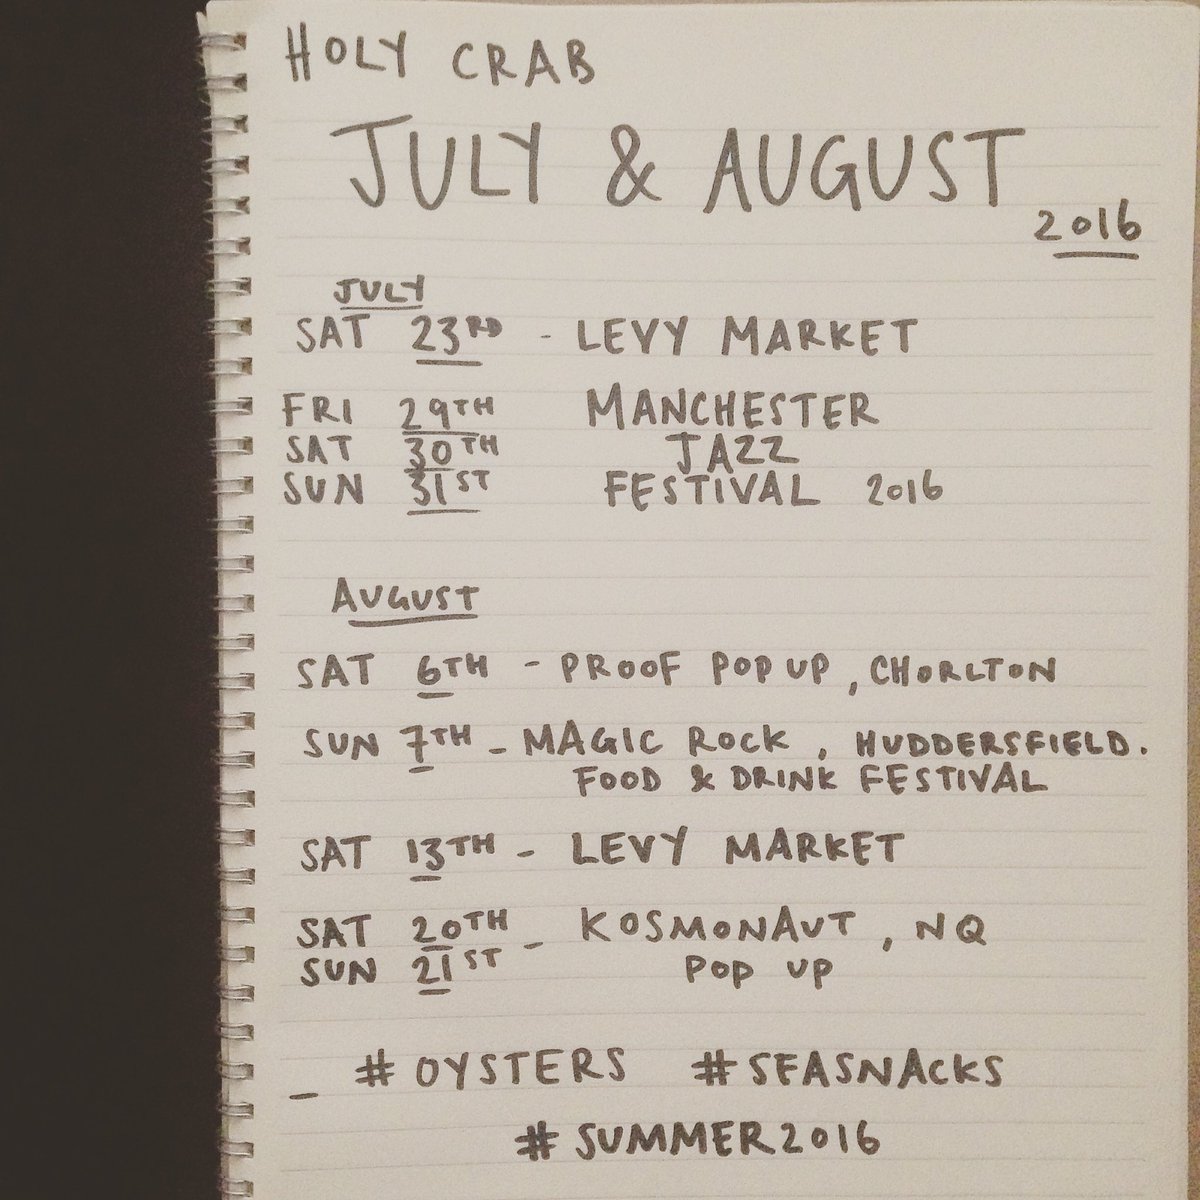 HOLY CRAB
JULY & AUGUST
2016
JULY
SAT 23RD - LEVY MARKET
FRI 29TH MANCHESTER
SAT 30TH JAZZ
SUN 31ST FESTIVAL 2016
AUGUST
SAT 6TH - PROOF POP UP, CHORLTON
SUN 7TH - MAGIC ROCK, HUDDERSFIELD.
FOOD & DRINK FESTIVAL
SAT 13TH - LEVY MARKET
SAT 20TH - KOSMONAUT, NQ
SUN 21ST POP UP
_ #OYSTERS #SEASNACKS
#SUMMER2016